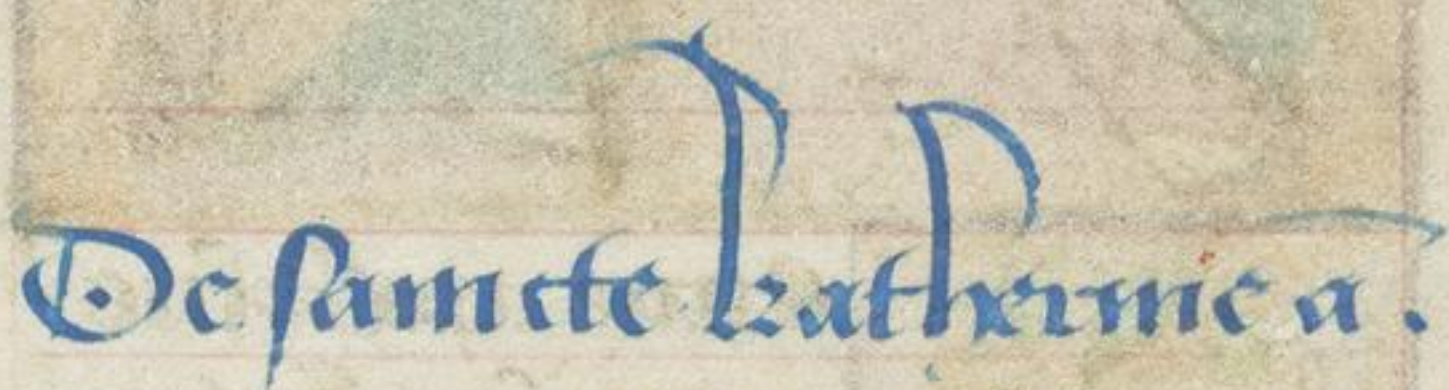 De saincte katherine a.